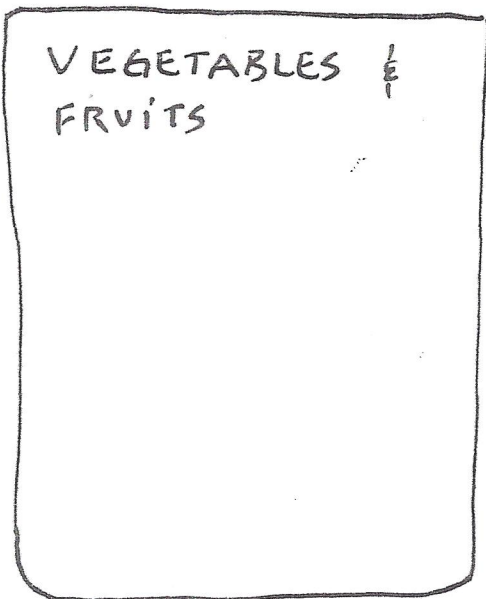 VEGETABLES &
FRUiTS